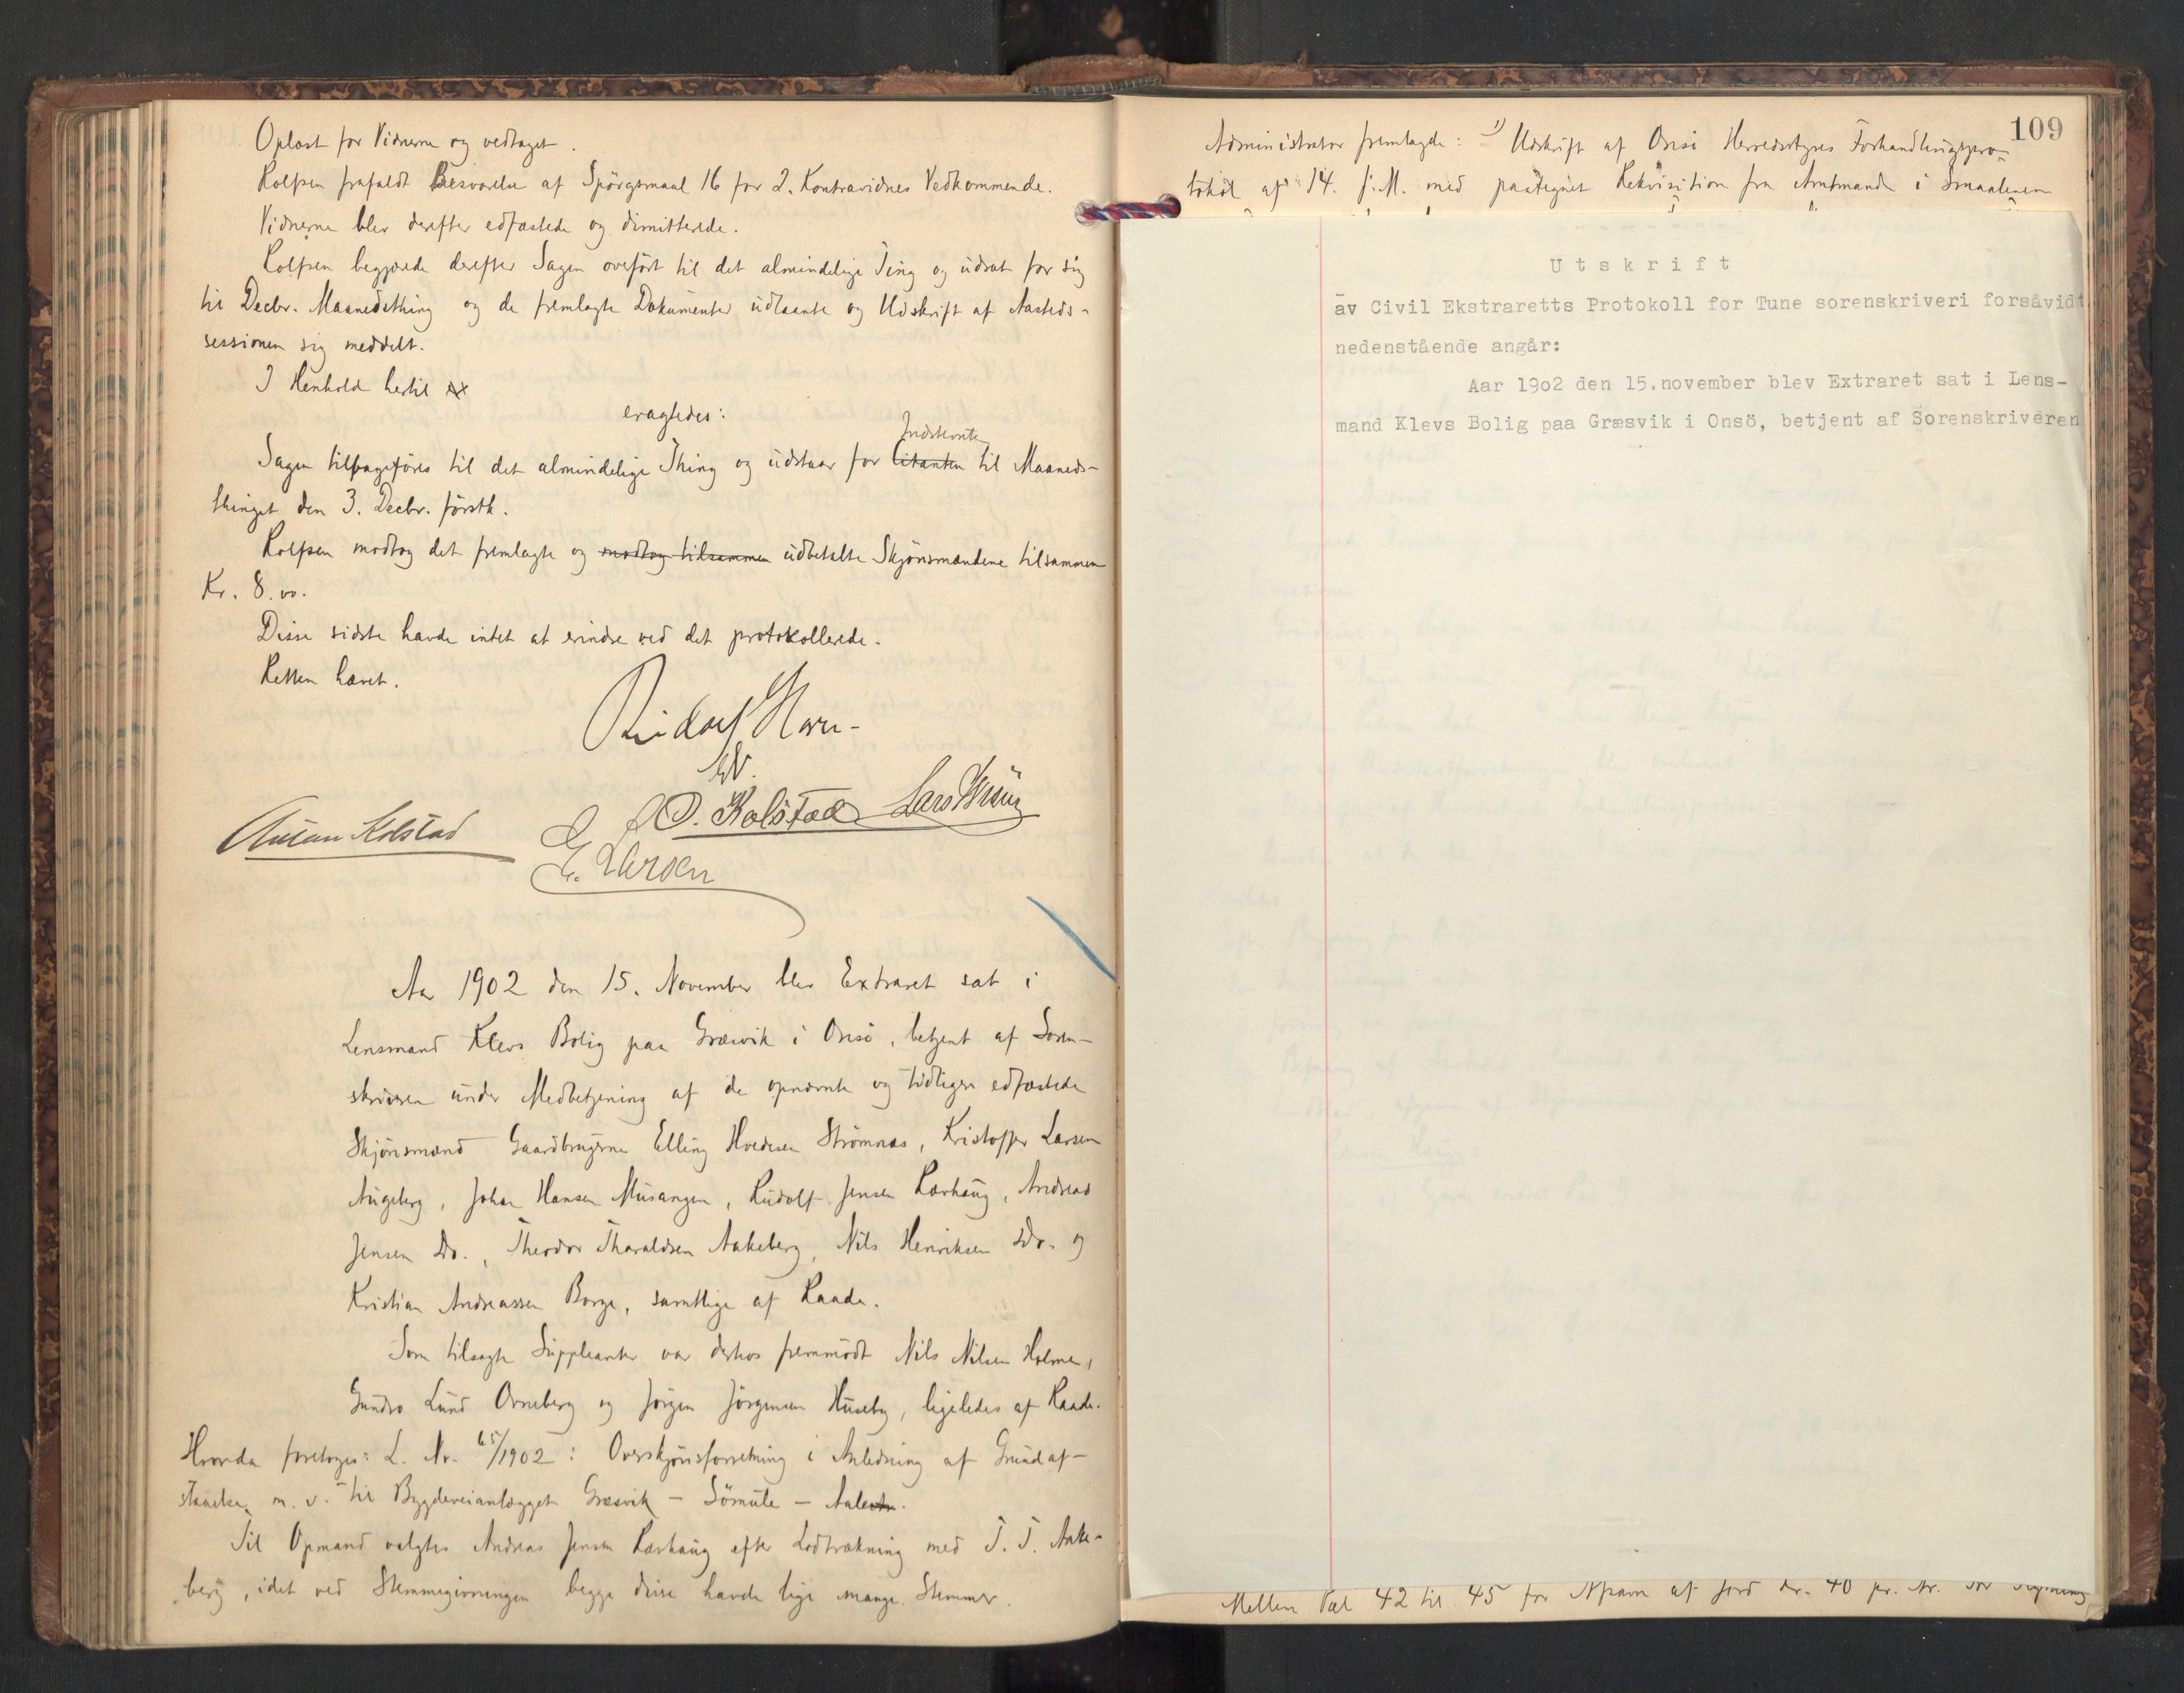 Oplæst for Vidnerne og vedtaget.
Rolfsen frafaldt Besvarelse af Spörgsmaal 16 for 2. Kontravidnes Vedkommende.
Vidnerne blev derefter edfæstede og dimitterede.
Rolfsen begjærede derefter Sagen overfört til det almindelige Ting og udsat for sig
til Decbr. Maanedsthing og de fremlagte Dokumenter udlaante og Udskrift af Aasteds-
sessionen sig meddelt.
I Henhold hertil
eragtedes:
Indstevnte
Sagen tilbageföres til det almindelige Thing og udstaar for Citanten til Maaneds-
thinget den 3. Decbr. förstk.
Rolfsen modtog det fremlagte og modtog tilsammen udbetalte Skjönsmændene tilsammen
Kr. 8.00.
Disse sidste havde intet at erindre ved det protokollerede.
Retten hævet.
Rudolf Horn
Anton Kolstad
O. Kolstad
E. Larsen
Aar 1902 den 15. November blev Extraret sat i
Lensmand Klevs Bolig paa Græsvik i Onsö, betjent af Soren-
skriveren under Medbetjening af de opnævnte og tidligere edfæstede
Skjönsmænd Gaardbrugerne Elling Hvedesen Strömnæs, Kristoffer Larsen
Augeberg, Johan Hansen Musangen, Rudolf Jensen Karhaug, Andreas
Jensen do., Theodor Tharaldsen Aakeberg, Nils Henriksen do. og
Kristian Andreassen Borge, samtlige af Raade.
Som tilsagte Suppleanter var derhos fremmödt Nils Nilsen Holme,
Gundro Lund Orneberg og Jörgen Jörgensen Huseby, ligeledes af Raade.
Hvorda foretoges: L. Nr. 65/1902: Overskjönsforretning i Anledning af Grundaf-
staaelse m. v. til Bygdeveianlægget Græsvik - Sömule - Aale
Til Opmand valgtes Andreas Jensen Karhaug efter Lodtrækning med T. T. Aake-
berg, idet ved Stemmegivningen begge disse havde lige mange Stemmer.
109
Administrator fremlagde: 1) Udskrift af Onsö Herredsstyres Forhandlingspro-
tokol af 14. f. M. med paategnet Rekvisition fra Amtmanden i Smaalenene
Utskrift
av Civil Ekstraretts Protokoll for Tune sorenskriveri forsåvidt
nedenstående angår:
Aar 19o2 den 15.november blev Extraret sat i Lens-
mand Klevs Bolig paa Græsvik i Onsö, betjent af Sorenskriveren
Mellem Pæl 42 til 45 for Afsavn af Jord Kr. 40 pr. Ar.